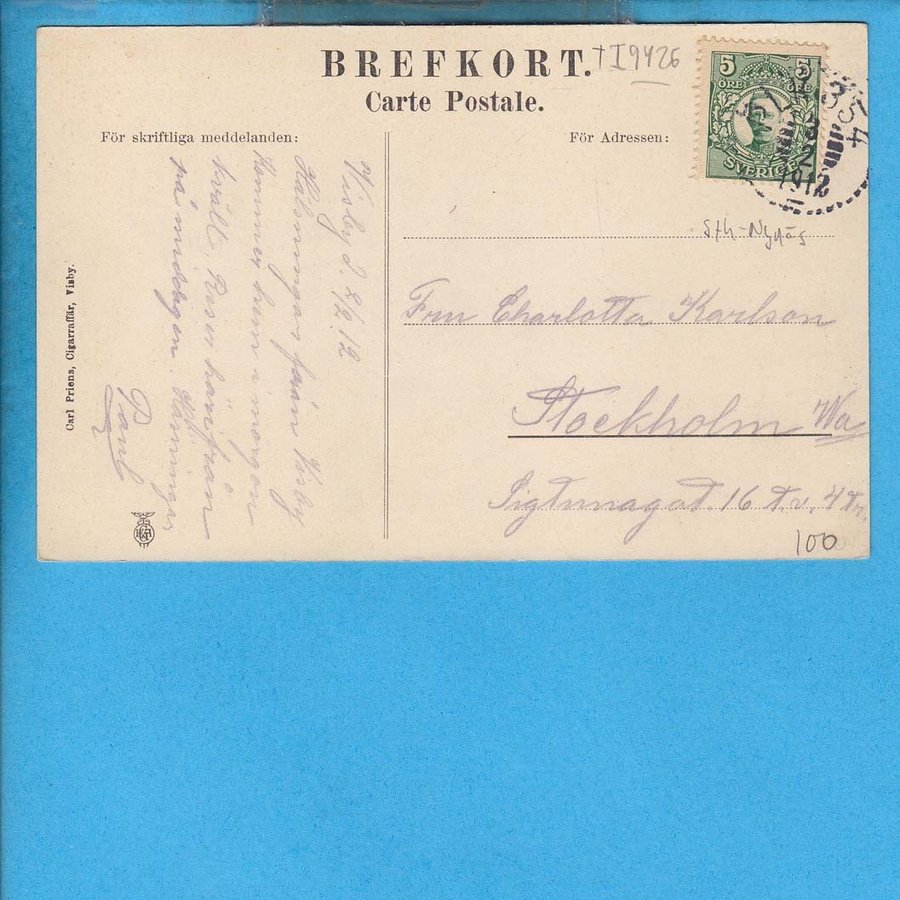 BREFKORT.
TI9426
Carte Postale.
För skriftliga meddelanden:
För Adressen:
5 5
ÖRE ÖRE
SVERIGE
334
3
2
1912
Sth-Nynäs
Visby d. 2/2 12
Hälsningar från Visby
Kommer hem i morgon
kväll. Reser härifrån
på middagen. Hälsningar
Paul
Fru Charlotta Karlson
Stockholm Va
Sigtunagat. 16 t.v. 4 tr.
100
Carl Priens, Cigarraffär, Visby.